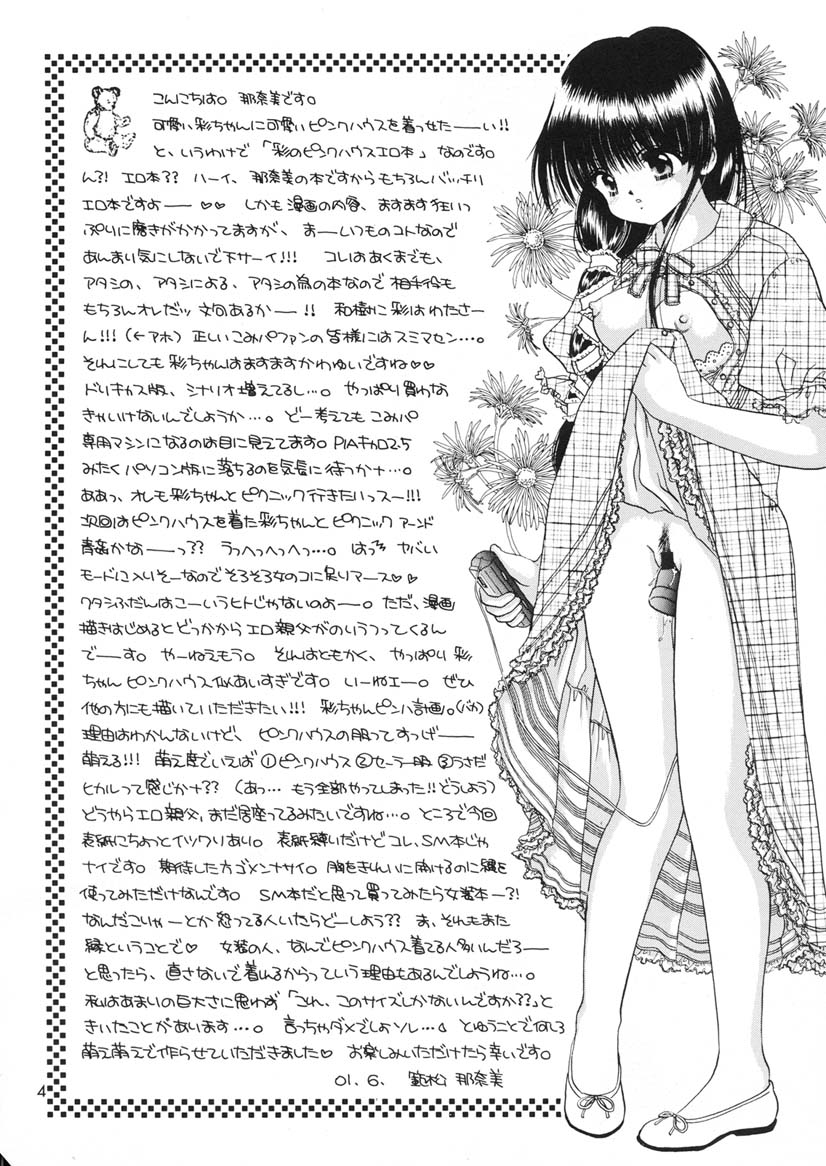 こんにちは。那奈美です。
可愛い彩ちゃんに可愛いピンクハウスを着せたーーい!!
と、いうわけで「彩のピンクハウスエロ本」なのです。
ん?! エロ本?? ハーイ、那奈美の本ですからもちろんバッチリ
エロ本ですよー♡♡ しかも漫画の内容、ますます狂いっ
ぷりに磨きがかかってますが、まーいつものコトなので
あんまり気にしないで下サーイ!!! コレはあくまでも、
アタシの、アタシによる、アタシの為の本なので相手役も
もちろんオレだッ 文句あるかー!! 和樹に彩はわたさー
ん!!!(←アホ)正しいこみパファンの皆様にはスミマセン…。
それにしても彩ちゃんはますますかわゆいですね♡♡
ドリキャス版、シナリオ増えてるし…。やっぱり買わな
きゃいけないんでしょうか…。どー考えてもこみパ
専用マシンになるのは目に見えてます。PIAキャロ2.5
みたくパソコン版に落ちるのを気長に待つかナ…。
ああっ、オレも彩ちゃんとピクニック行きたいっスー!!!
次回はピンクハウスを着た彩ちゃんとピクニック アーンド
青姦かなーっ?? うっへっへっへっ…。はっ ヤバい
モードに入りそーなのでそろそろ女のコに戻りマース♡♡
ワタシふだんはこーいうヒトじゃないのよー。ただ、漫画
描きはじめるとどっかからエロ親父がのりうつってくるん
でーす。やーねえもう。それはともかく、やっぱり彩
ちゃんピンクハウス似あいすぎです。いーねェー。ぜひ
他の方にも描いていただきたい!!! 彩ちゃんピンハ計画。(バカ)
理由はわかんないけど、ピンクハウスの服ってすっげー
萌える!!! 萌え度でいえば①ピンクハウス②セーラー服③うさだ
ヒカルって感じかナ?? (あっ…もう全部やってしまった!!どうしよう)
どうやらエロ親父、まだ居座ってるみたいですね…。ところで今回
表紙にちょっとイツワリあり。表紙縛いだけどコレ、SM本じゃ
ナイです。期待した方ゴメンナサイ。胸をきれいに開けるのに縄を
使ってみただけなんです。SM本だと思って買ってみたら女装本ー?!
なんだこりゃーとか怒ってる人いたらどーしよう?? ま、それもまた
縁ということで♡ 女装の人、なんでピンクハウス着てる人多いんだろー
と思ったら、直さないで着れるからっていう理由もあるんでしょうね…。
私はあまりの巨大さに思わず「これ、このサイズしかないんですか??」と
きいたことがあります…。言っちゃダメでしょソレ… とゆうことで何しろ
萌え萌えで作らせていただきました♡ お楽しみいただけたら幸いです。
01.6. 那奈美
4